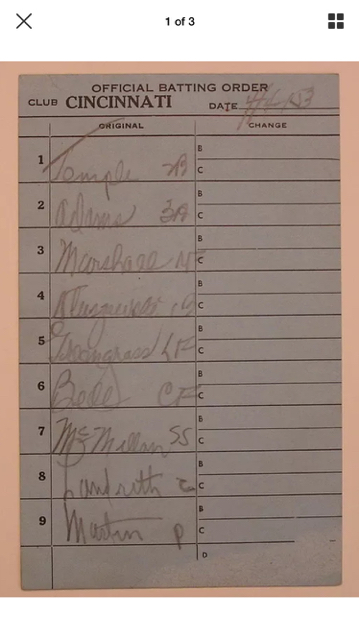 1 of 3
OFFICIAL BATTING ORDER
CLUB CINCINNATI DATE
ORIGINAL CHANGE
1 Temple 2B B
C
2 Adams 3B B
C
3 Marshall B
C
4 B
C
5 LF B
C
6 Bell CF B
C
7 McMillan SS B
C
8 Landrith C B
C
9 Martin P B
C
D